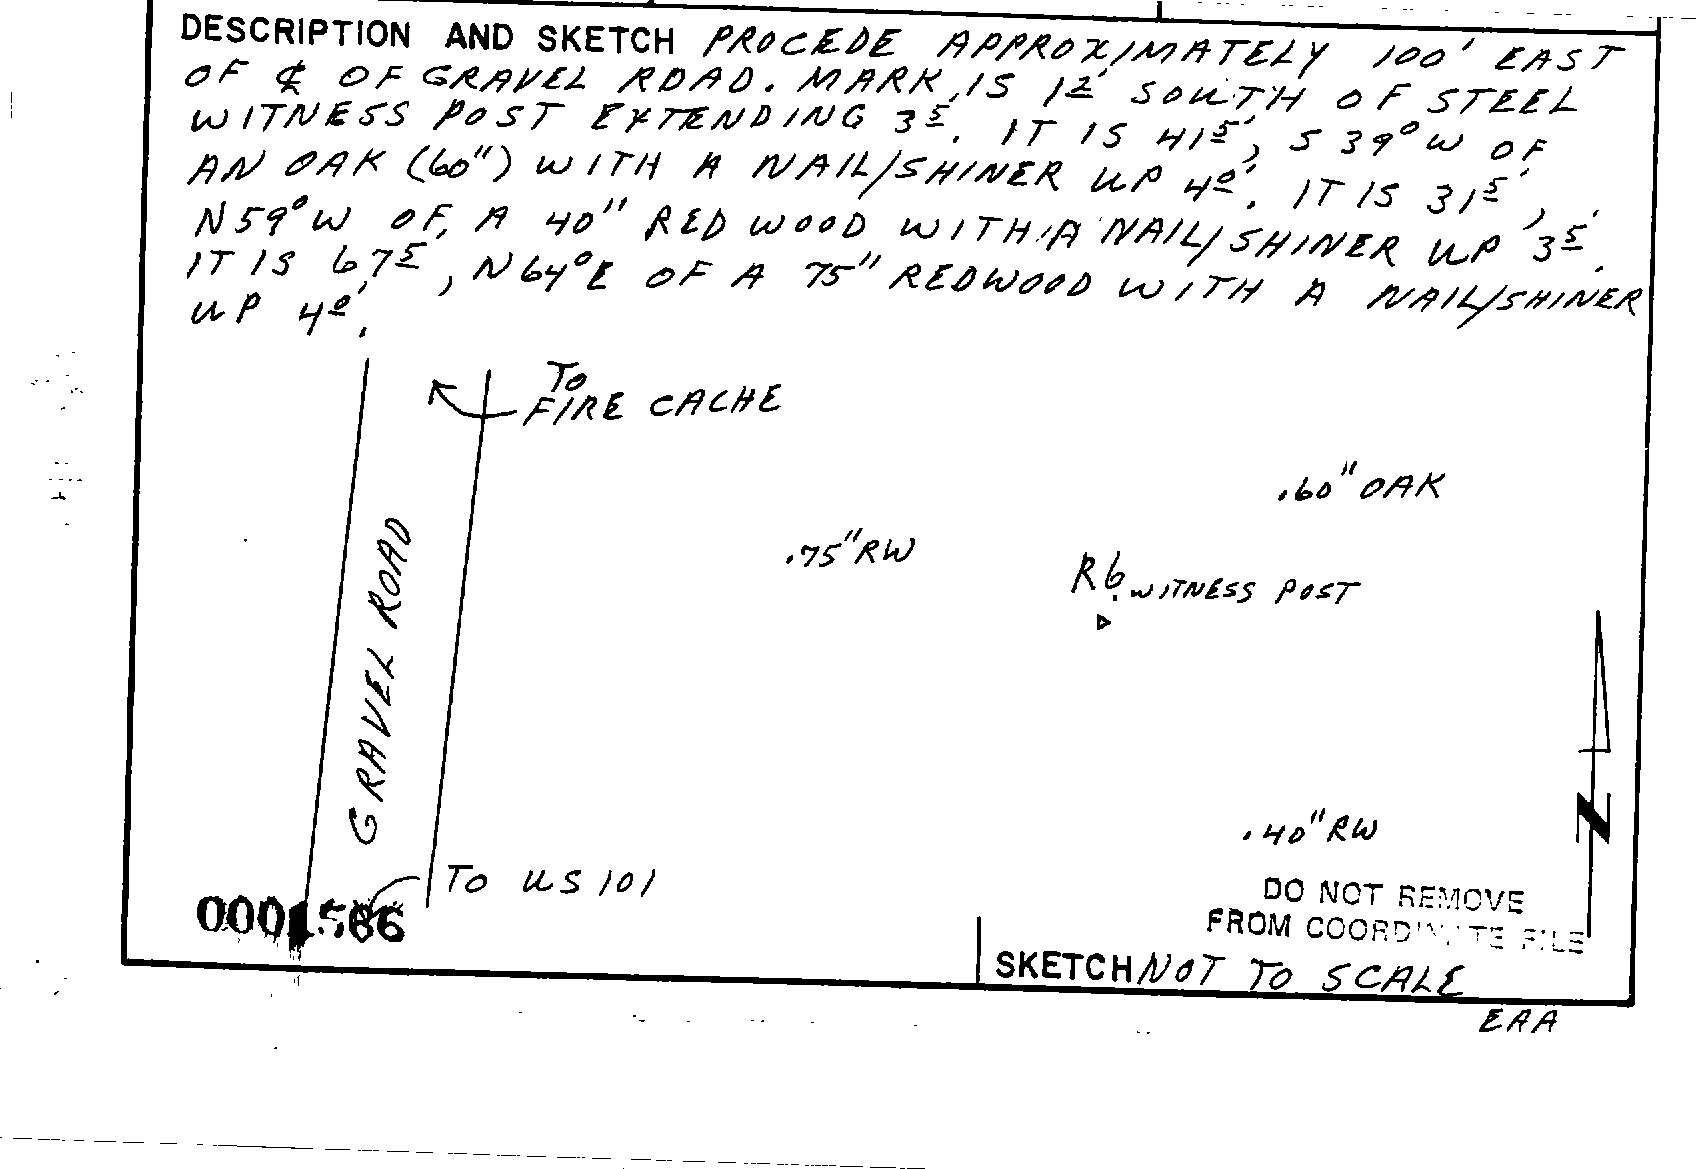 DESCRIPTION AND SKETCH PROCEDE APPROXIMATELY 100' EAST
OF ℄ OF GRAVEL ROAD. MARK IS 1²' SOUTH OF STEEL
WITNESS POST EXTENDING 3⁵'. IT IS 41⁵', S 39°W OF
AN OAK (60") WITH A NAIL/SHINER UP 4⁰'. IT IS 31⁵',
N59°W OF A 40" REDWOOD WITH A NAIL/SHINER UP 3⁵'.
IT IS 67⁵', N64°E OF A 75" REDWOOD WITH A NAIL/SHINER
UP 4⁰'.
TO
FIRE CACHE
.60" OAK
.75" RW
R6
WITNESS POST
GRAVEL ROAD
.40" RW
N
TO US 101
DO NOT REMOVE
FROM COORDINATE FILE
SKETCH NOT TO SCALE
EAA